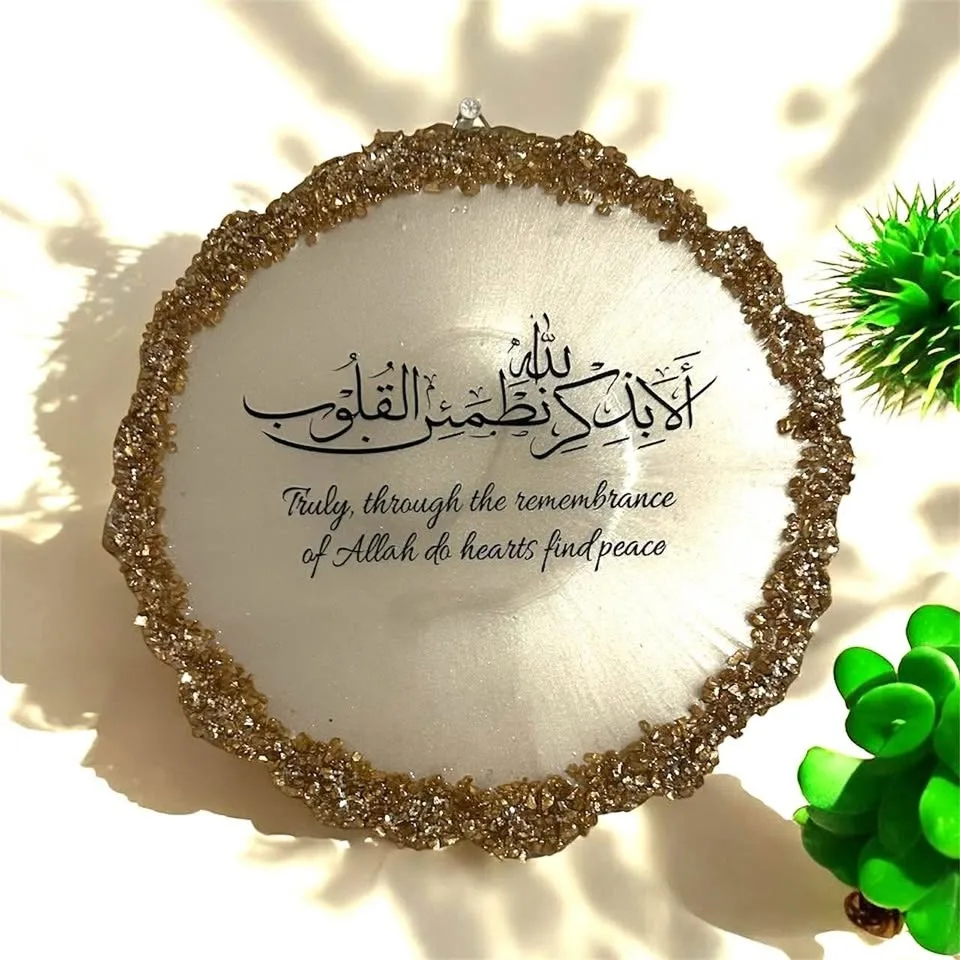 أَلَا بِذِكْرِ اللّٰه تَطْمَئِن القُلُوْب
Truly, through the remembrance
of Allah do hearts find peace